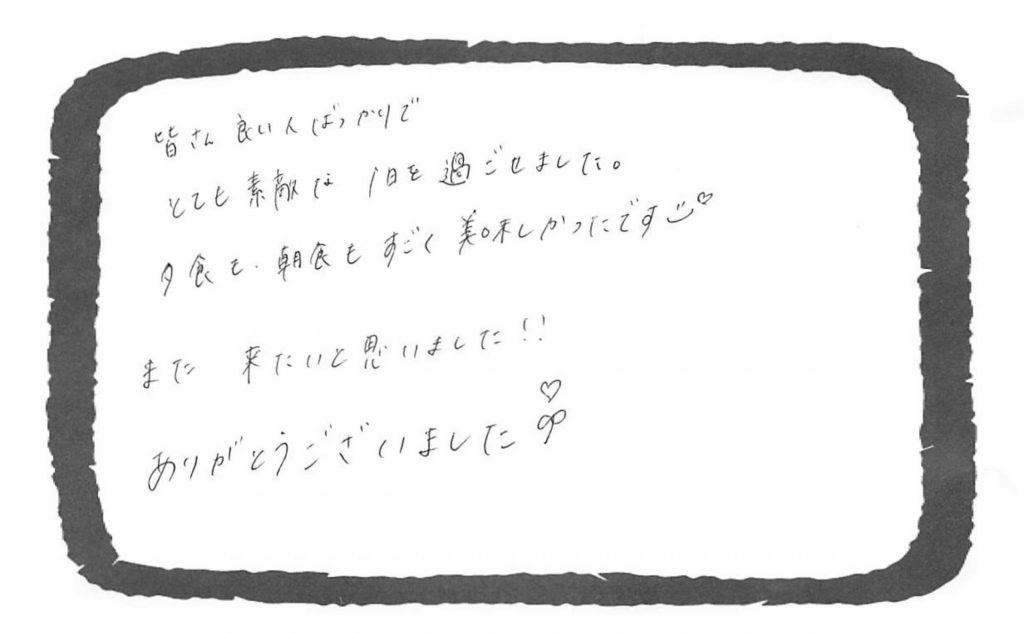 皆さん良い人ばっかりで
とても素敵な 1日を過ごせました。
夕食も、朝食もすごく美味しかったです
また 来たいと思いました!!
ありがとうございました